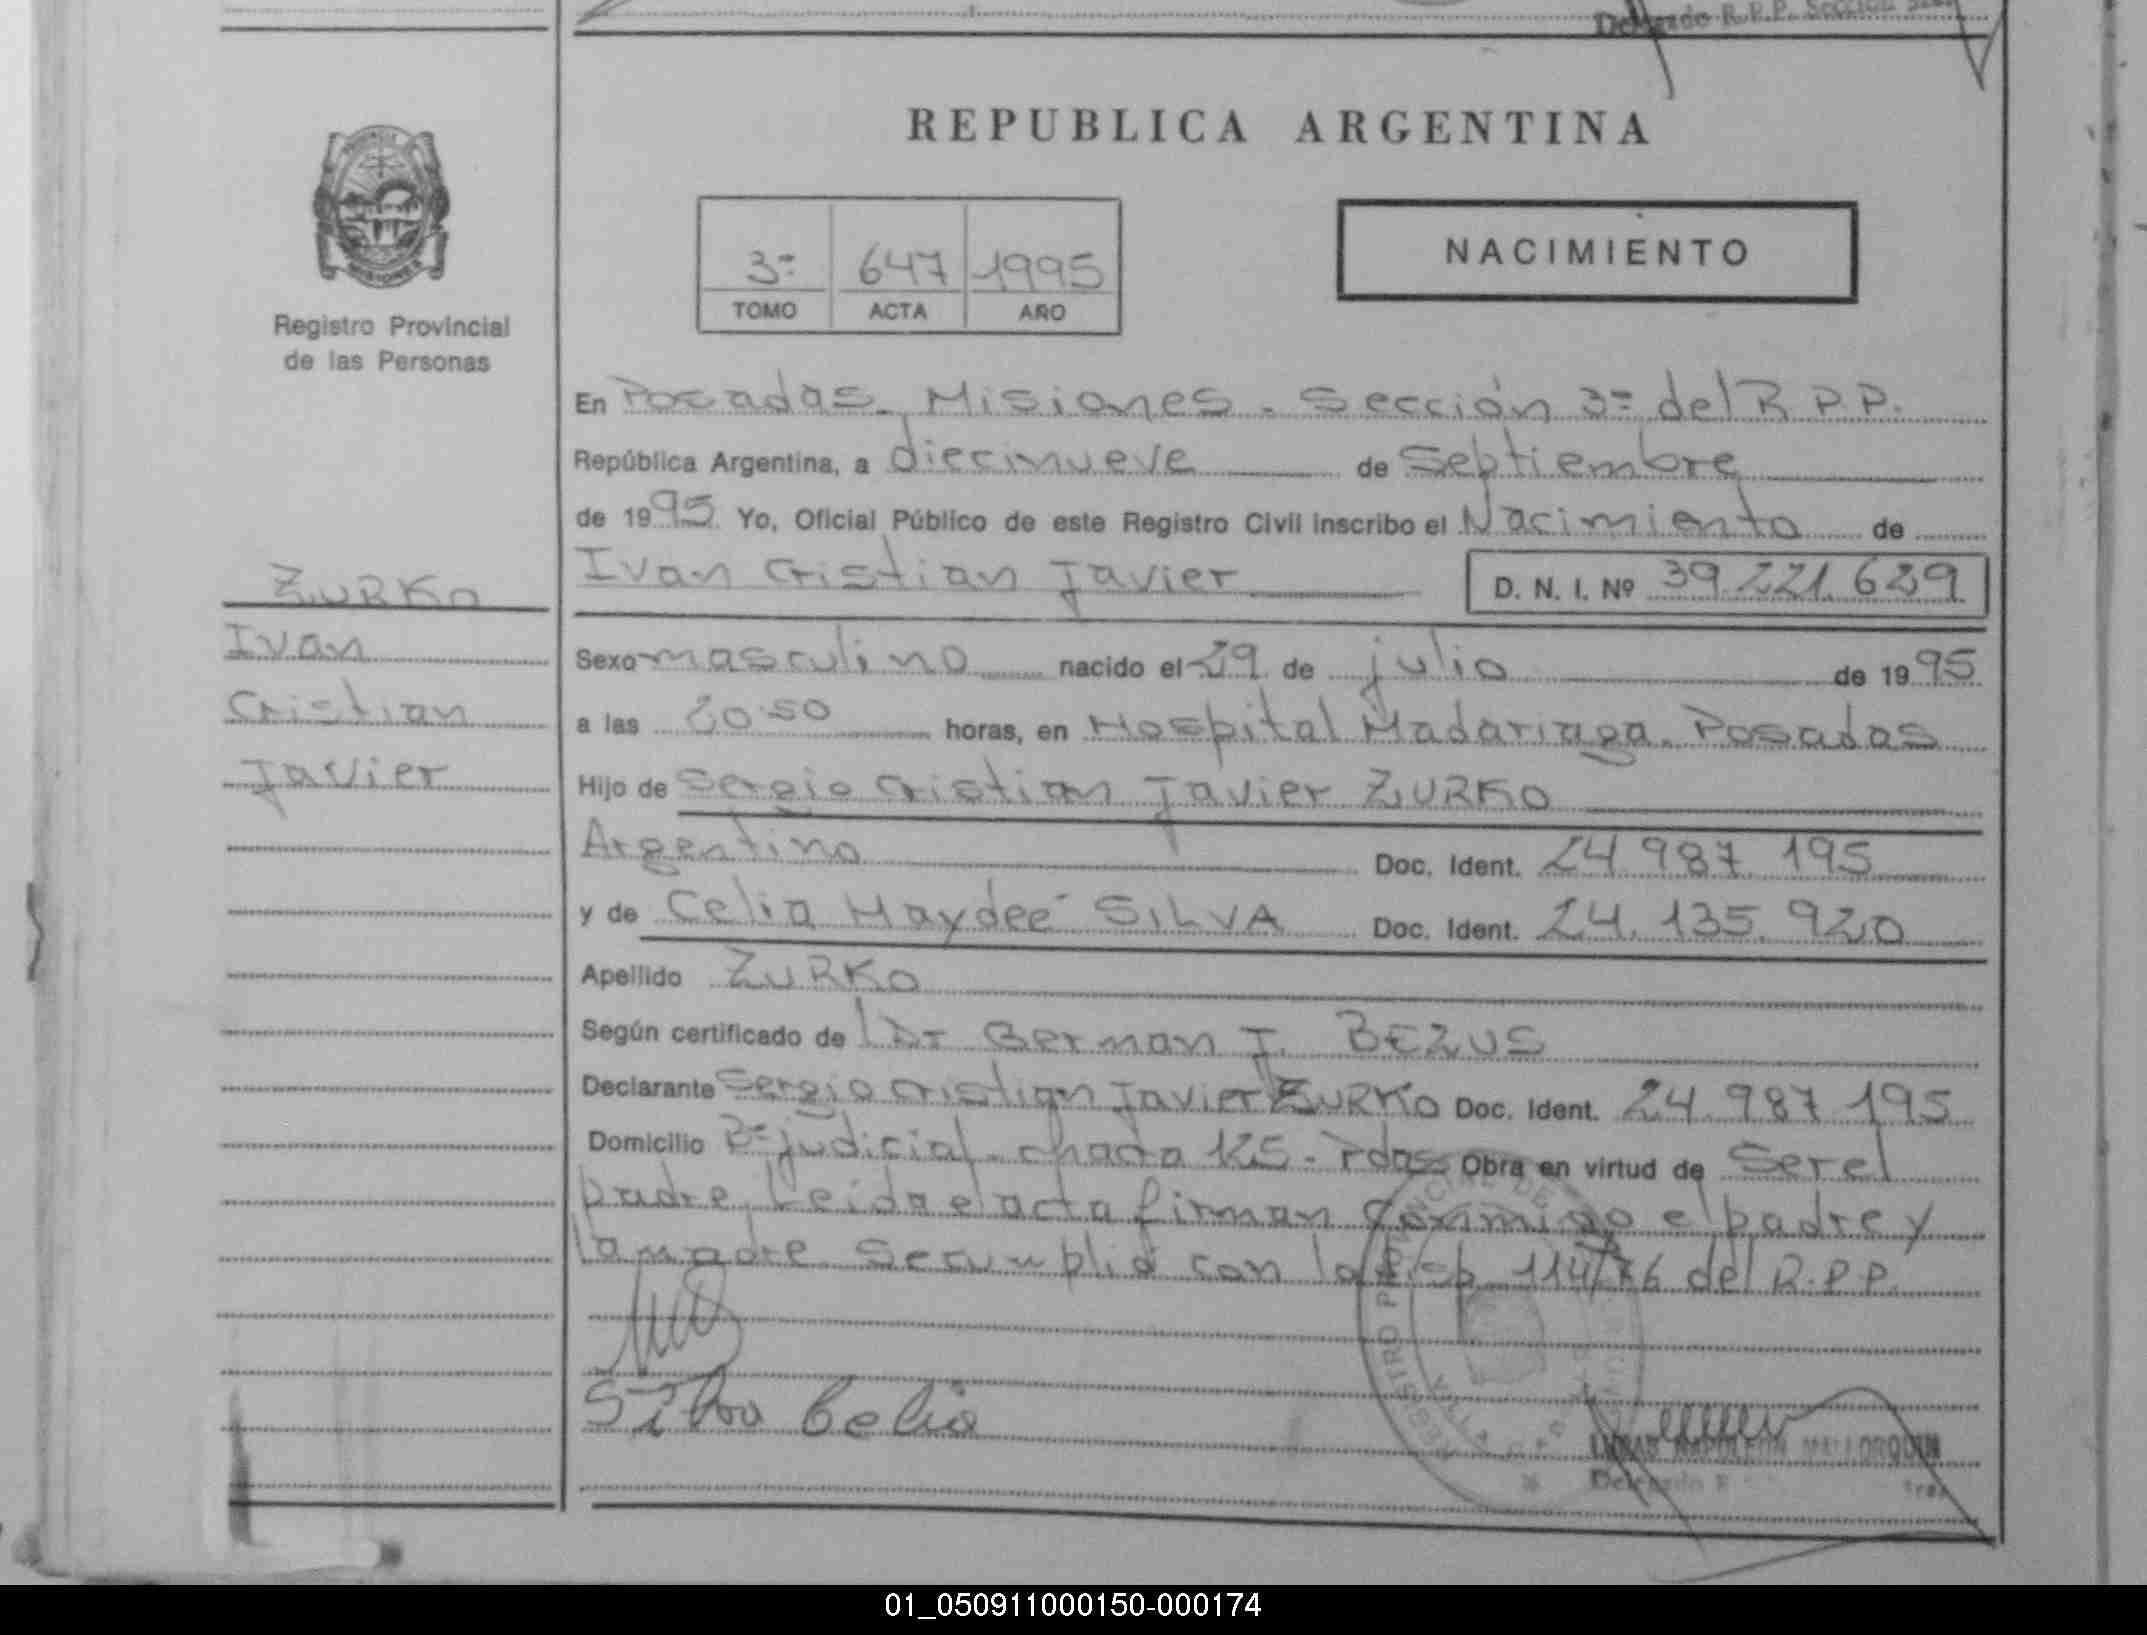 Delegado R.P.P. Sección
REPUBLICA ARGENTINA
MISIONES
Registro Provincial
de las Personas
3ª 647 1995
TOMO ACTA AÑO
NACIMIENTO
En Posadas. Misiones. Sección 3ª del R.P.P.
República Argentina, a diecinueve de Septiembre
de 1995 Yo, Oficial Público de este Registro Civil inscribo el Nacimiento de
Ivan Cristian Javier D. N. I. Nº 39.221.629
ZURKO
Ivan
Cristian
Javier
Sexo masculino nacido el 29 de julio de 1995
a las 20:50 horas, en Hospital Madariaga. Posadas
Hijo de Sergio Cristian Javier ZURKO
Argentino Doc. Ident. 24.987.195
y de Celia Haydeé SILVA Doc. Ident. 24.135.920
Apellido ZURKO
Según certificado de Dr German J. BEZUS
Declarante Sergio Cristian Javier ZURKO Doc. Ident. 24.987.195
Domicilio judicial. chacra 125. Pdas Obra en virtud de Ser el
padre. Leida el acta firman conmigo el padre y
la madre. Se cumplió con la Disp. 114/76 del R.P.P.
Silva Celia
NAPOLEON MALLORQUIN
Delegado
01_050911000150-000174